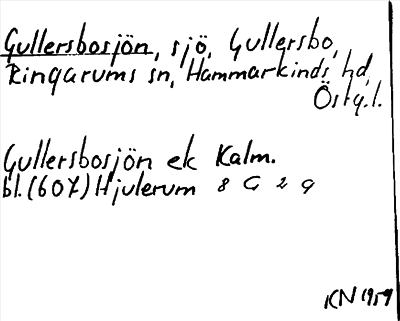 Gullersbosjön, sjö, Gullersbo,
Ringarums sn, Hammarkinds hd,
Östg.l.
Gullersbosjön ek Kalm.
bl. (607) Hjulerum 8 G 2 g
KN 1959